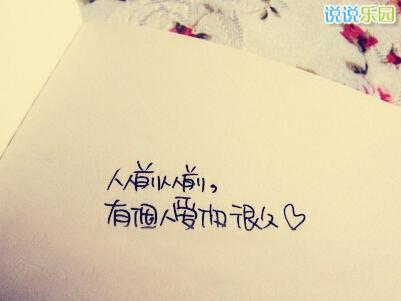 说说乐园
从前从前,
有個人愛你很久♡